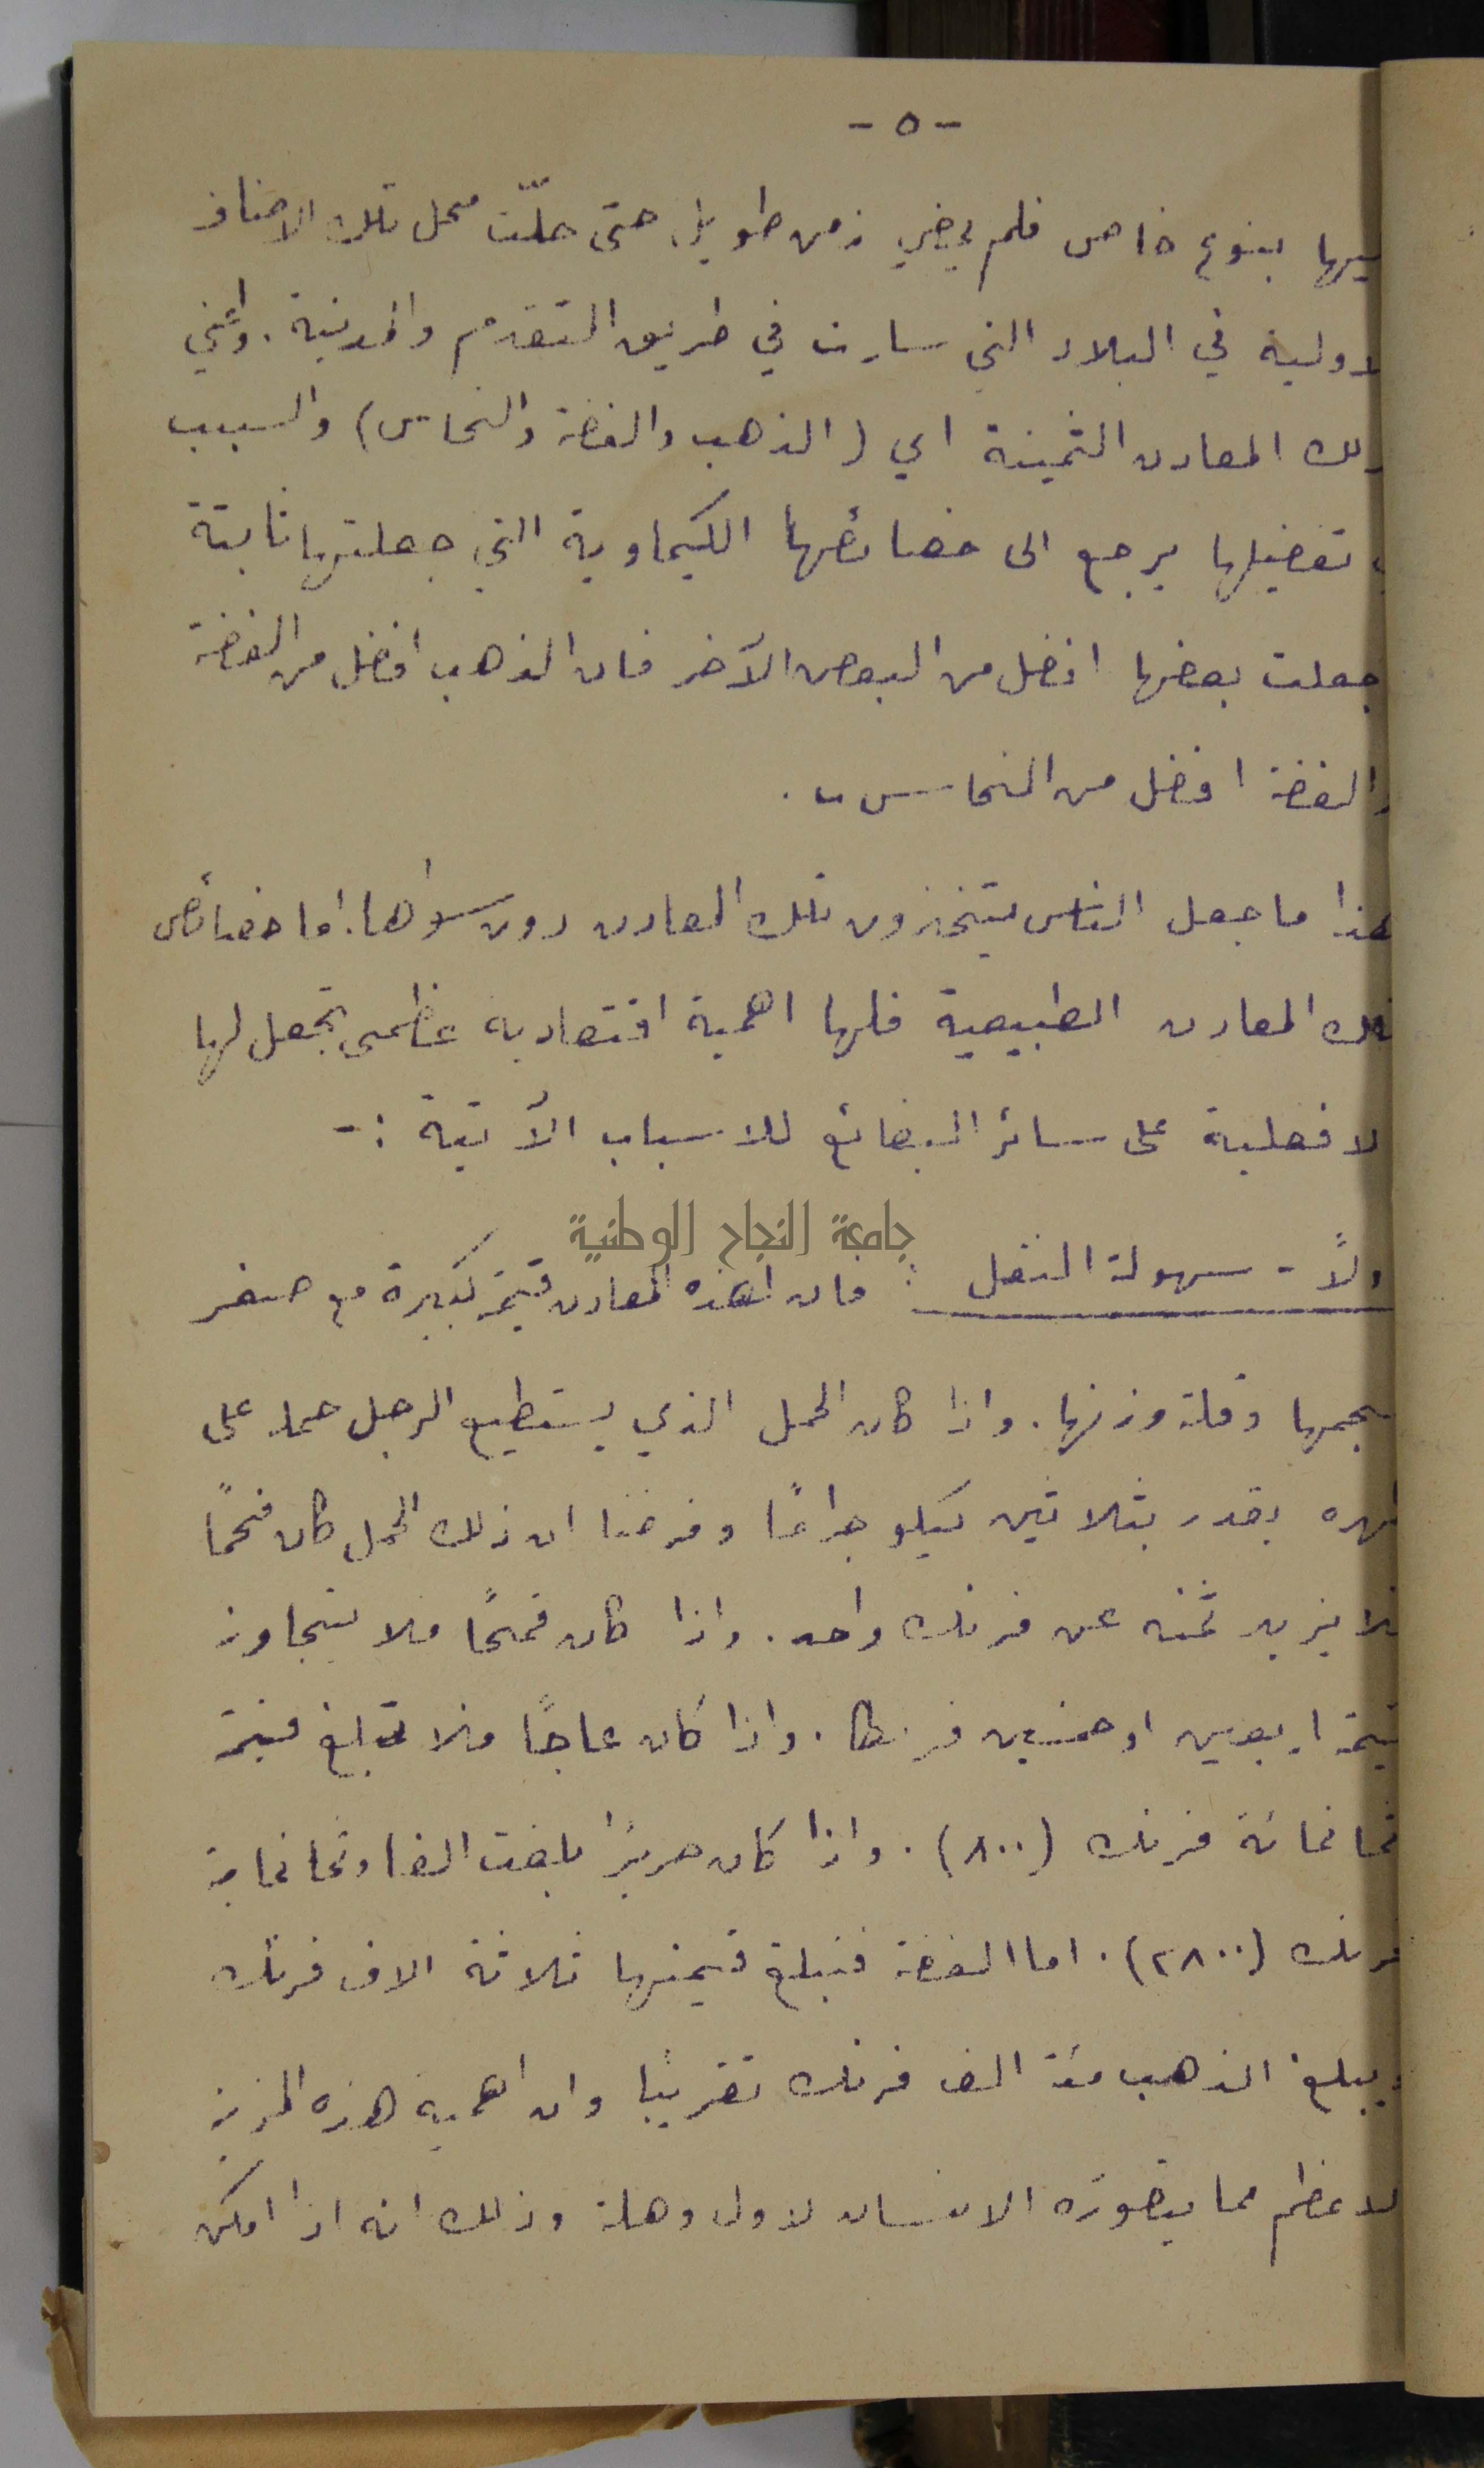 - ٥ -
بنوع خاص فلم يمضي زمن طويل حتى حلّت محل تلك الاصناف
في البلاد التي سارت في طريق التقدم والمدنية. واعني
المعادن الثمينة اي (الذهب والفضة والنحاس) والسبب
تفضيلها يرجع الى خصائصها الكيماوية التي جعلتها ثابتة
جعلت بعضها افضل من البعض الآخر فان الذهب افضل من الفضة
والفضة افضل من النحاس .
هذا ما جعل الناس يتخذون تلك المعادن دون سواها. اما خصائص
تلك المعادن الطبيعية فلها اهمية اقتصادية عظمى تجعل لها
لافضلية على سائر البضائع للاسباب الآتية :-
جامعة النجاح الوطنية
ولاً - سهولة النقل : فان لهذه المعادن قيمة كبيرة مع صغر
حجمها وقلة وزنها. واذا كان الحمل الذي يستطيع الرجل حمله على
ظهره يقدر بثلاثين كيلو جرامًا وفرضنا ان ذلك الحمل كان فحمًا
فلا يزيد ثمنه عن فرنك واحد. واذا كان قمحًا فلا يتجاوز
قيمة اربعين او خمسين فرنكا. واذا كان عاجًا فلا تبلغ قيمة
ثمانمائة فرنك (٨٠٠). واذا كان حريرًا بلغت الفا وثمانماية
فرنك (٢٨٠٠). اما الفضة فتبلغ قيمتها ثلاثة الاف فرنك
ويبلغ الذهب مئة الف فرنك تقريبًا وان اهمية هذه المزية
لاعظم مما يتصوره الانسان لاول وهلة وذلك انه اذا امكن